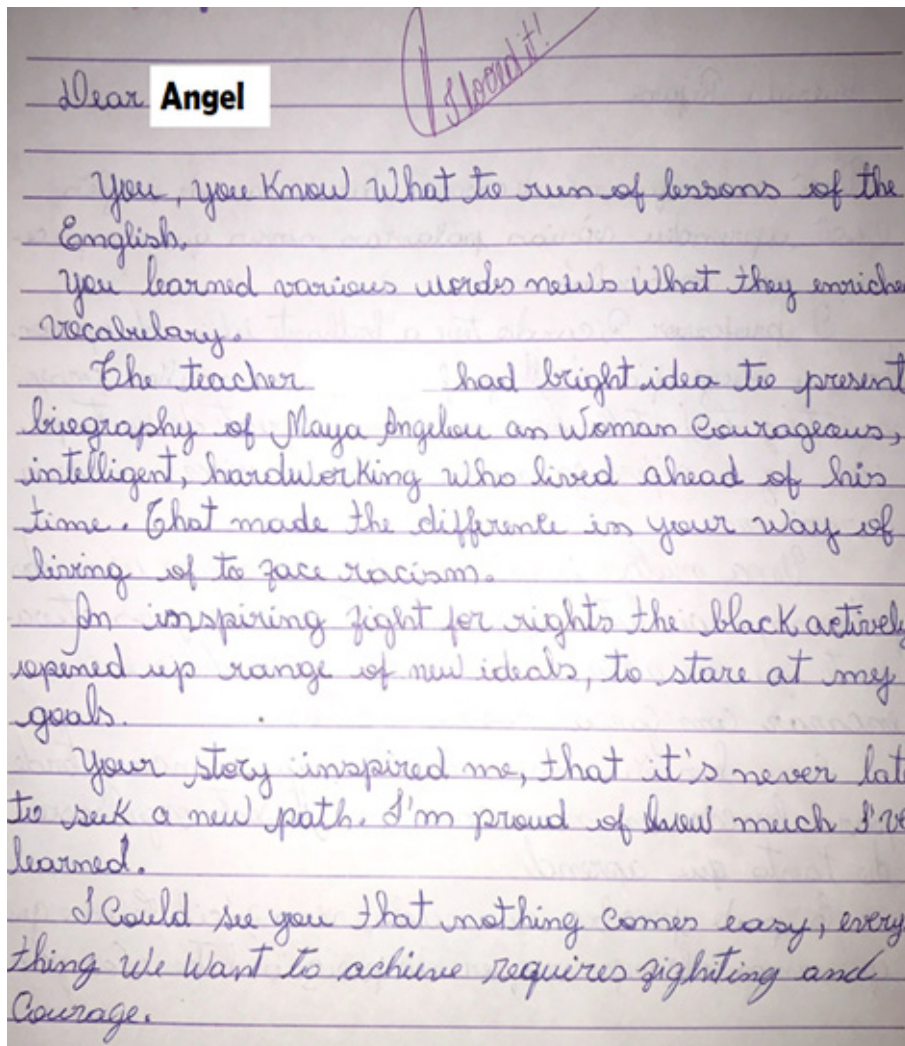 I loved it!
Dear Angel
You, you Know What to run of lessons of the
English.
You learned various words news What they enriche
vocabulary.
The teacher had bright idea to present
biography of Maya Angelou an Woman Courageous,
intelligent, hardworking who lived ahead of his
time. That made the difference in your way of
living of to face racism.
An inspiring fight for rights the black actively
opened up range of new ideals, to stare at my
goals.
Your story inspired me, that it's never lat
to seek a new path. I'm proud of how much I've
learned.
I Could see you that nothing comes easy, every
thing We Want to achieve requires fighiting and
Courage.